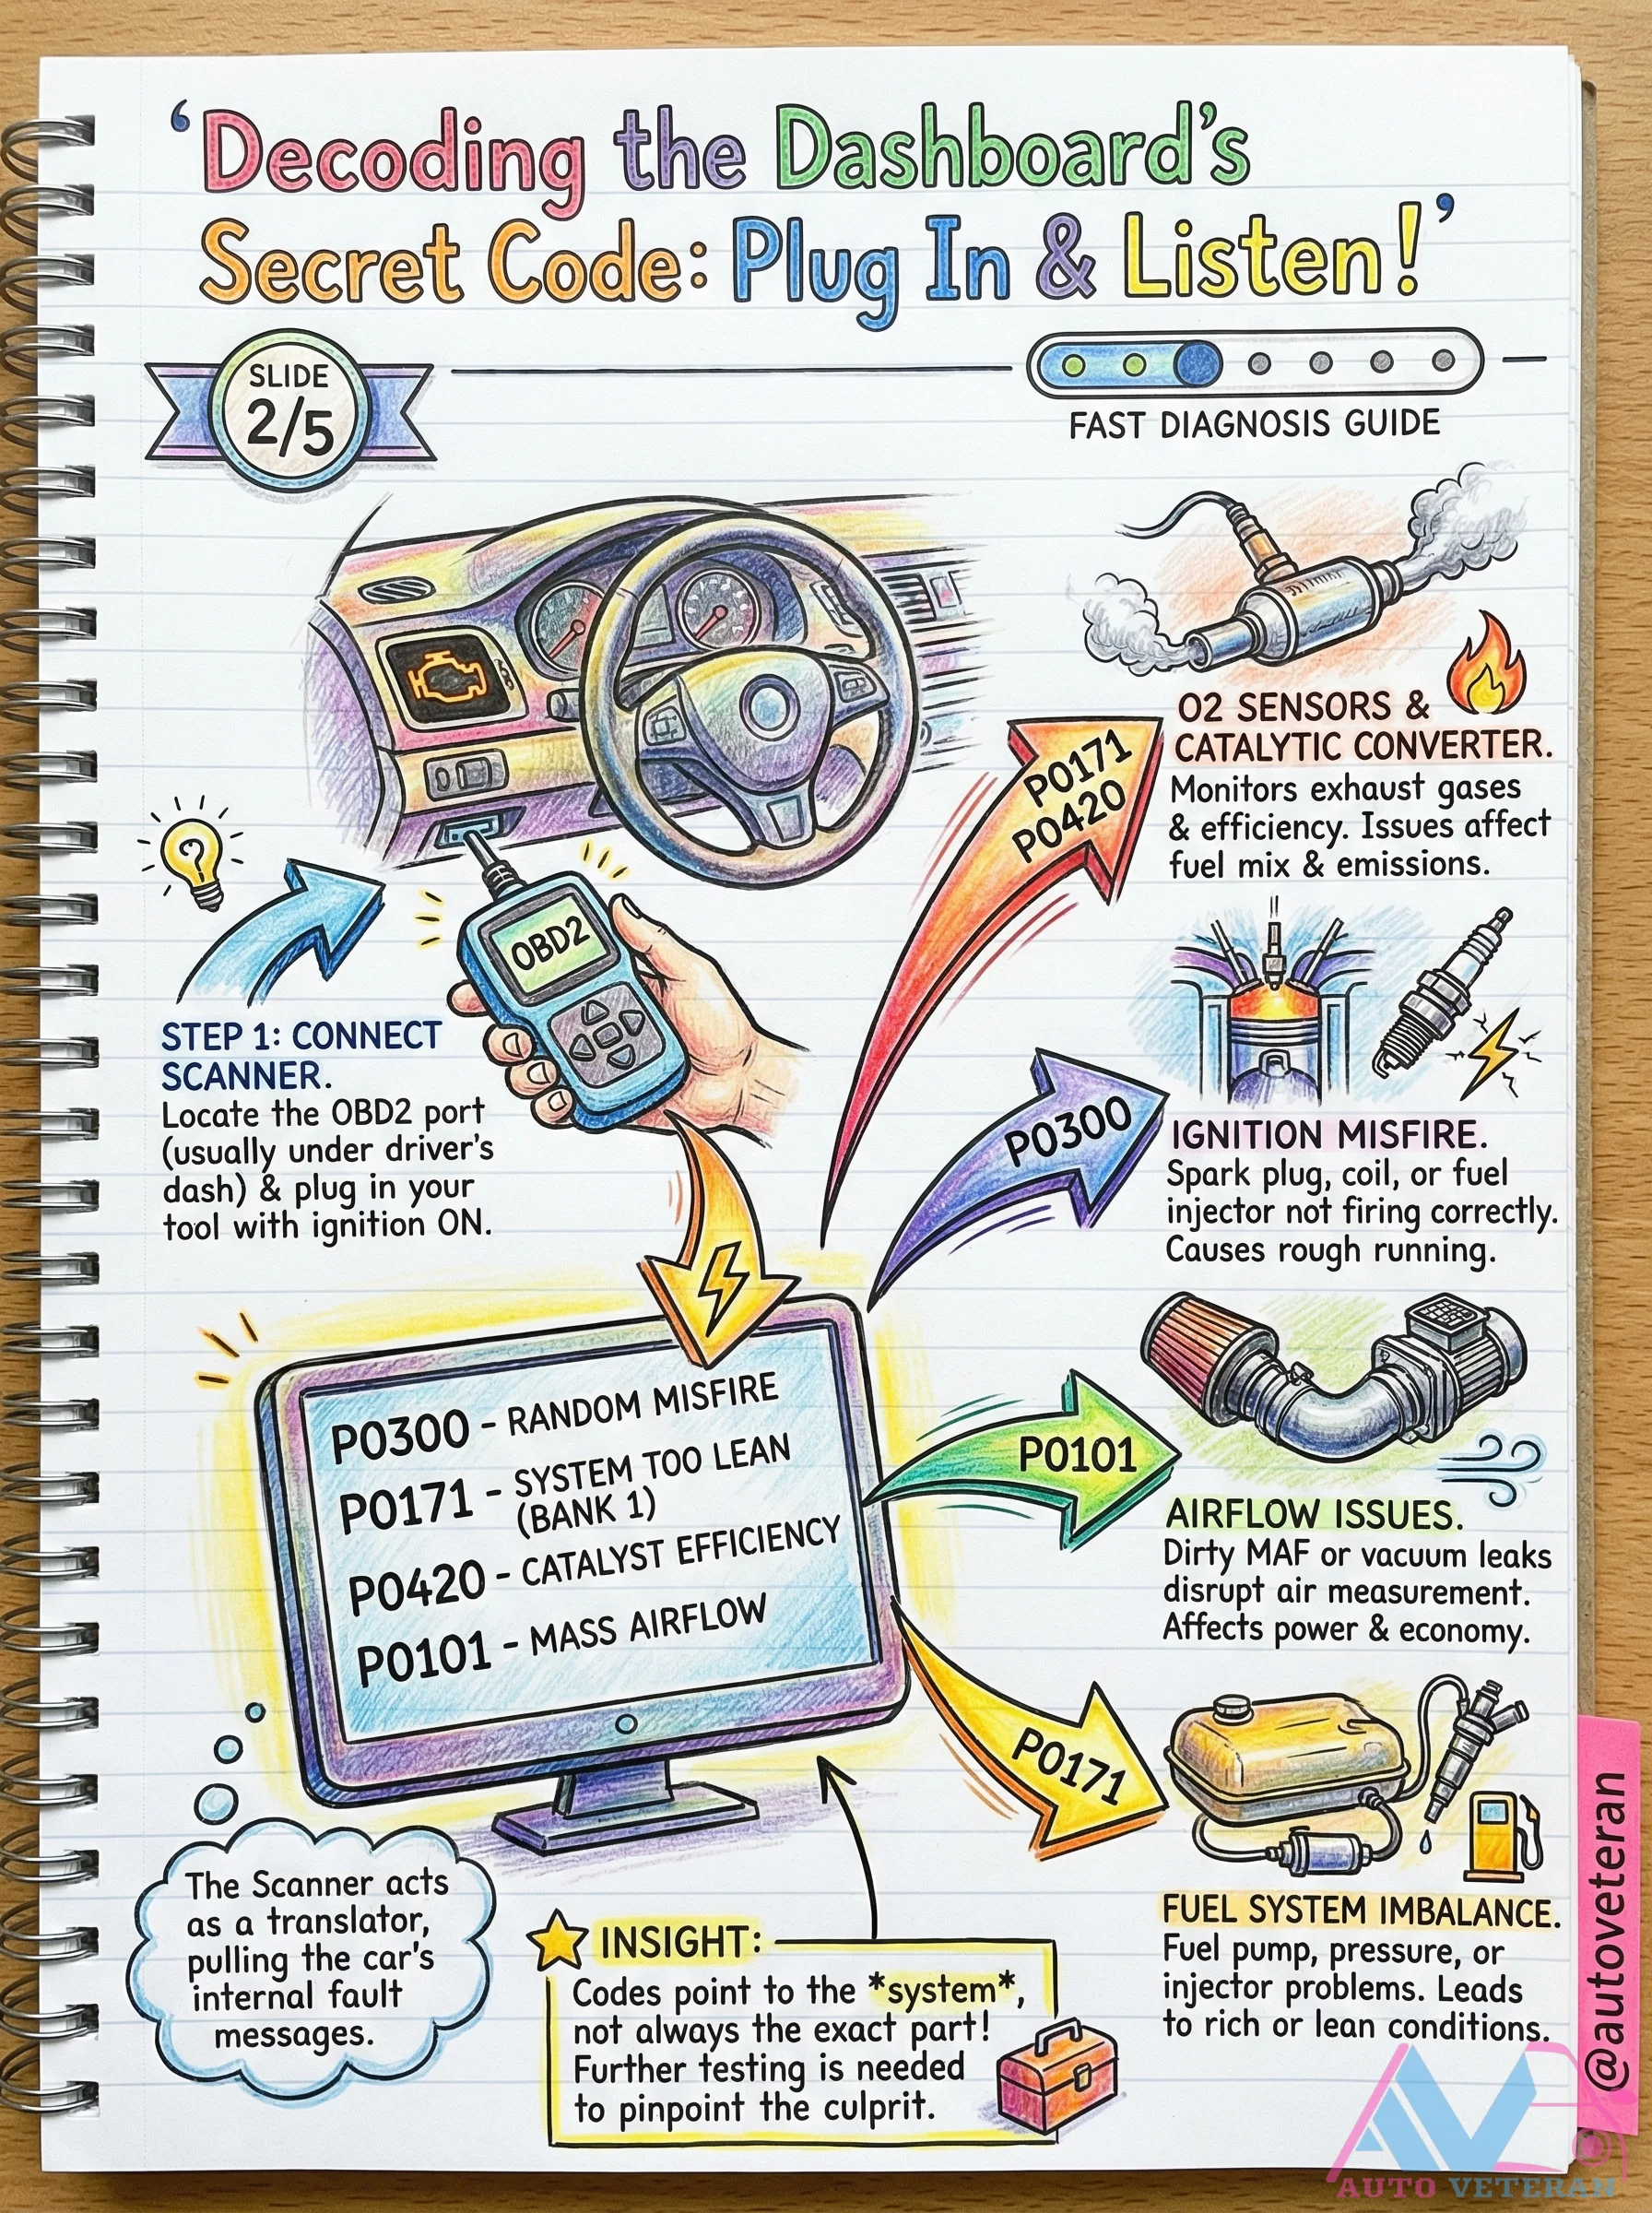 ‘Decoding the Dashboard’s
Secret Code: Plug In & Listen!’
SLIDE
2/5
FAST DIAGNOSIS GUIDE
OBD2
STEP 1: CONNECT
SCANNER.
Locate the OBD2 port
(usually under driver’s
dash) & plug in your
tool with ignition ON.
P0300 - RANDOM MISFIRE
P0171 - SYSTEM TOO LEAN
(BANK 1)
P0420 - CATALYST EFFICIENCY
P0101 - MASS AIRFLOW
The Scanner acts
as a translator,
pulling the car’s
internal fault
messages.
INSIGHT:
Codes point to the *system*,
not always the exact part!
Further testing is needed
to pinpoint the culprit.
P0171
P0420
O2 SENSORS &
CATALYTIC CONVERTER.
Monitors exhaust gases
& efficiency. Issues affect
fuel mix & emissions.
P0300
IGNITION MISFIRE.
Spark plug, coil, or fuel
injector not firing correctly.
Causes rough running.
P0101
AIRFLOW ISSUES.
Dirty MAF or vacuum leaks
disrupt air measurement.
Affects power & economy.
P0171
FUEL SYSTEM IMBALANCE.
Fuel pump, pressure, or
injector problems. Leads
to rich or lean conditions.
@autoveteran
AUTO VETERAN